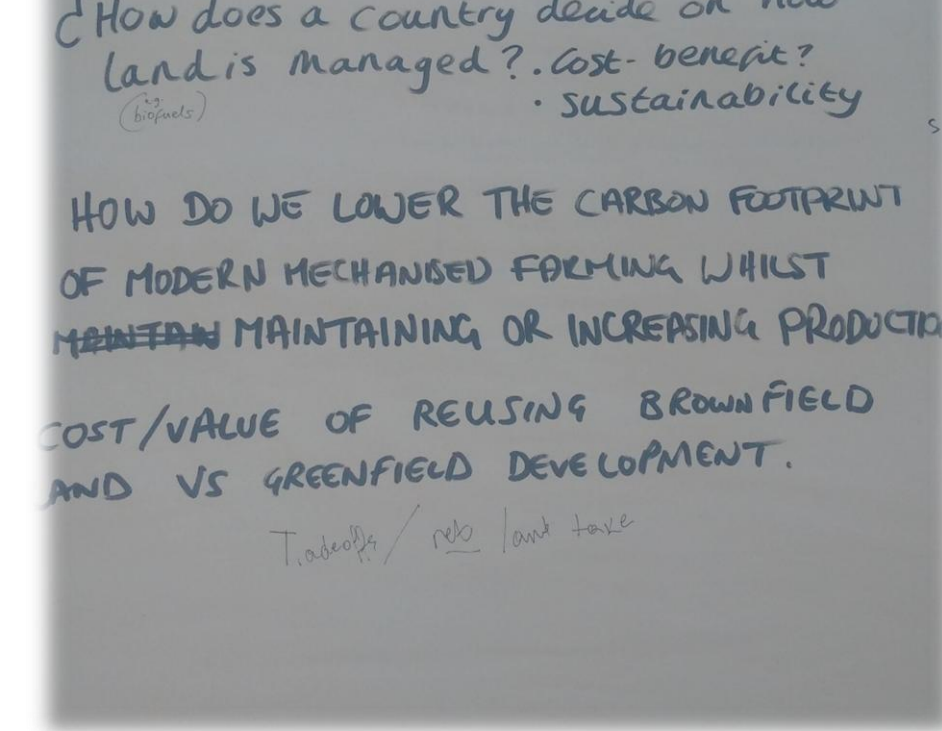 ¿How does a country decide on how
land is managed? . Cost-benefit?
(eg. biofuels)
· sustainability
HOW DO WE LOWER THE CARBON FOOTPRINT
OF MODERN MECHANISED FARMING WHILST
MAINTAIN MAINTAINING OR INCREASING PRODUCTIO
COST/VALUE OF REUSING BROWNFIELD
AND VS GREENFIELD DEVELOPMENT.
Tradeoffs / land take